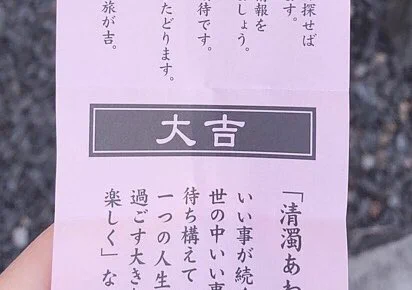 探せば
ます。
報を
しょう。
待です。
たどります。
旅が吉。
大吉
「清濁あわ
いい事が続
世の中いい事
待ち構えて
一つの人生
過ごす大き
楽しく」な